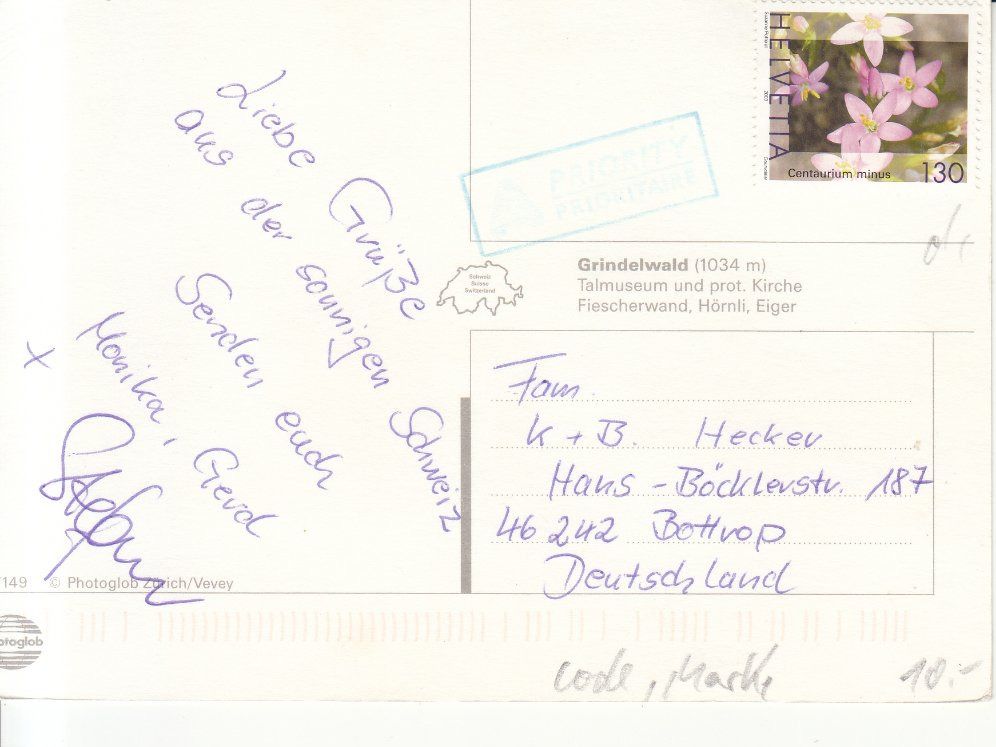 Liebe Grüße
aus der sonnigen Schweiz
Senden euch
Monika, Gerd
+
Stefan
HELVETIA
2003
Centaurium minus
130
PRIORITY
PRIORITAIRE
Schweiz
Suisse
Switzerland
Grindelwald (1034 m)
Talmuseum und prot. Kirche
Fiescherwand, Hörnli, Eiger
Fam.
K + B. Hecker
Hans - Böcklerstr. 187
46242 Bottrop
Deutschland
/149 © Photoglob Zürich/Vevey
otoglob
Code, Marke
10.-